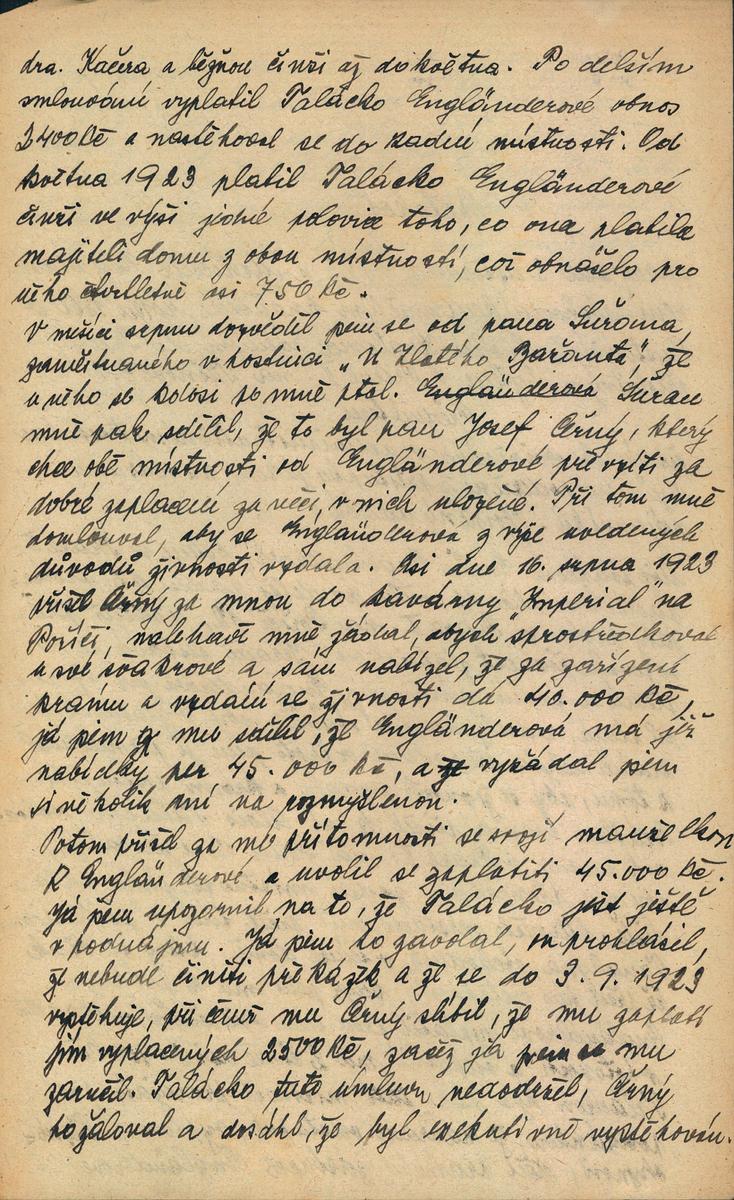 dra. Kačera a běžnou činži až do května. Po delším
smlouvání vyplatil Talácko Engländerové obnos
2400 Kč a nastěhoval se do zadní místnosti. Od
května 1923 platil Talácko Engländerové
činži ve výši jedné polovice toho, co ona platila
majiteli domu z obou místností, což obnášelo pro
něho čtvrtletně asi 750 Kč.
V měsíci srpnu dozvěděl jsem se od pana
zaměstnaného v hostinci „U Zlatého Bažanta", že
u něho se kdosi po mně ptal. Engländerová
mně pak sdělil, že to byl pan Josef Černý, který
chce obě místnosti od Engländerové převzíti za
dobré zaplacení za věci, v nich uložené. Při tom mně
domlouval, aby se Engländerová z výše uvedených
důvodů živnosti vzdala. Asi dne 16. srpna 1923
přišel Černý za mnou do kavárny „Imperial" na
Poříčí, naléhavě mně žádal, abych sprostředkoval
u své švakrové a sám nabízel, že za zařízení
krámu a vzdání se živnosti dá 40.000 Kč,
já jsem mu sdělil, že Engländerová má již
nabídky per 45.000 Kč, a že vyžádal jsem
si několik dní na rozmyšlenou.
Potom přišel za mé přítomnosti se svojí manželkou
k Engländerové a uvolil se zaplatiti 45.000 Kč.
Já jsem upozornil na to, že Talácko jest ještě
v podnájmu. Já jsem ho zavolal, on prohlásil,
že nebude činiti překážek a že se do 3. 9. 1923
vystěhuje, při čemž mu Černý slíbil, že mu zaplatí
jím vyplacených 2500 Kč, začež já jsem se mu
zaručil. Talácko tuto úmluvu nedodržel, Černý
ho žaloval a dosáhl, že byl exekutivně vystěhován.